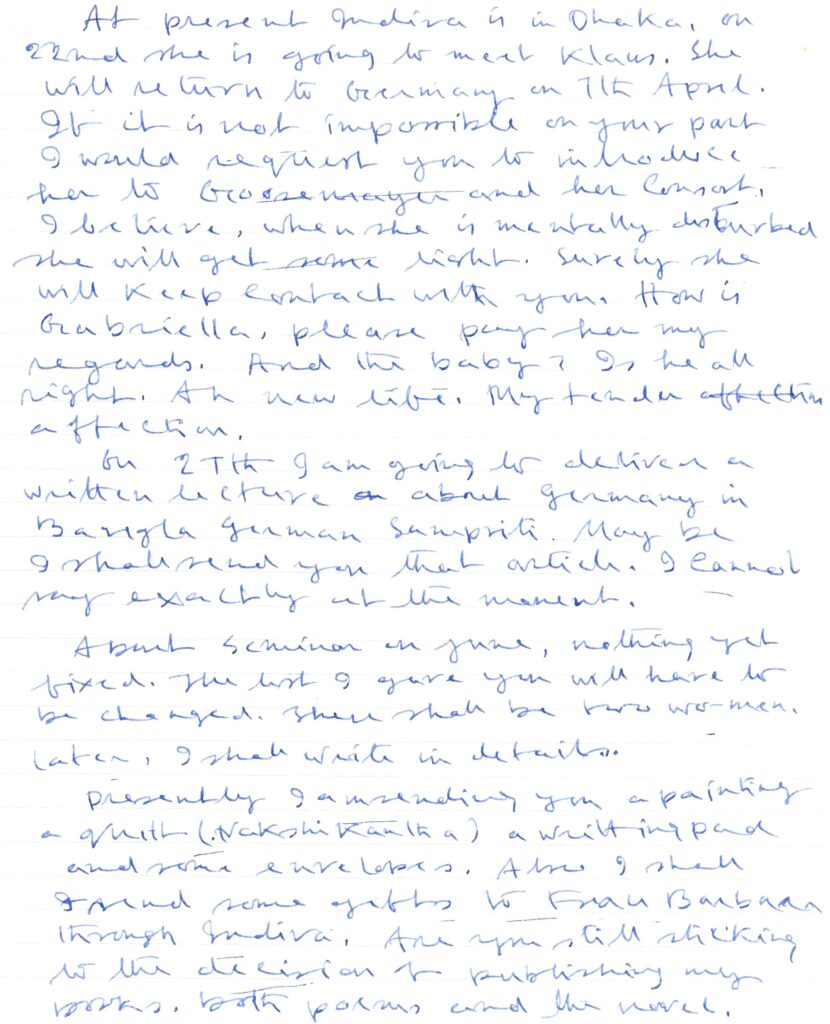 At present Indira is in Dhaka, on
22nd she is going to meet Klaus. She
will return to Germany on 7th April.
If it is not impossible on your part
I would request you to introduce
her to and her Consort.
I believe, when she is mentally disturbed
she will get some light. Surely she
will keep contact with you. How is
Gabriella, please pay her my
regards. And the baby? Is he all
right. An new life. My tender affection
affection.
On 27th I am going to deliver a
written lecture on about Germany in
Bangla German Sampriti. May be
I shall send you that article. I cannot
say exactly at the moment.
About Seminar on June, nothing yet
fixed. The list I gave you will have to
be changed. There shall be two wo-men.
Later, I shall write in details.
Presently I am sending you a painting
a quilt (Nakshi Kantha) a writting pad
and some envelopes. Also I shall
send some gifts to Frau Barbara
through Indira. Are you still sticking
to the decision of publishing my
books. both poems and the novel.